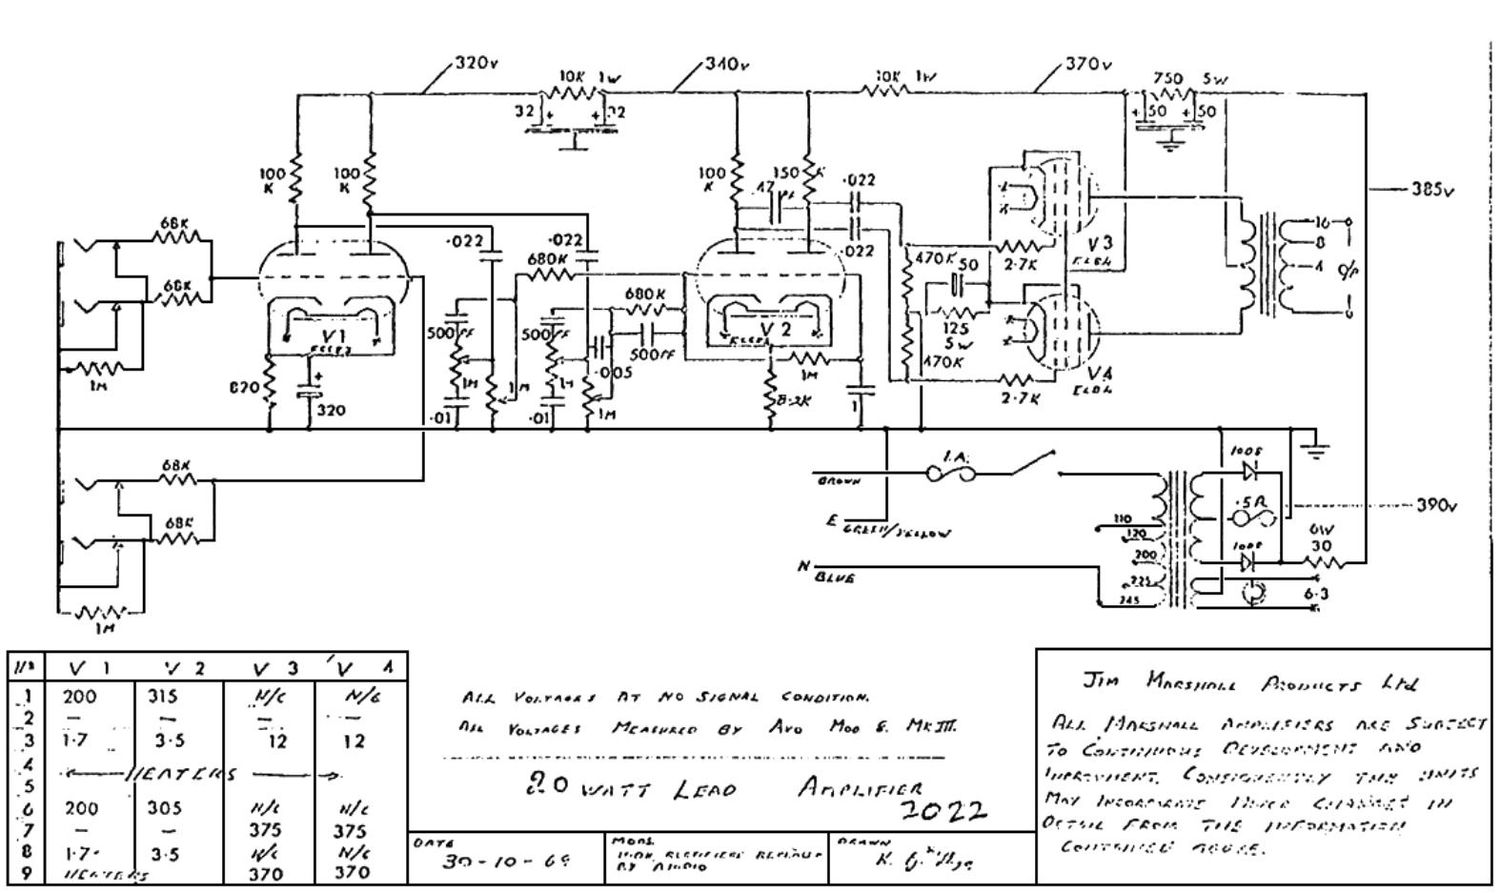 320v
340v
370v
10K 1W
10K 1W
750 5W
32 + + 32
+ 50 + 50
100 K
100 K
100 K
150 K
385v
68K
68K
.022
.022
.47
.022
.022
680K
680K
470K
50
2.7K
V3
EL84
16
8
4
O/P
500PF
500PF
500PF
V1
V2
125
5W
470K
V4
EL84
2.7K
820
+
320
1M
1M
1M
1M
1M
.005
.01
.01
8.2K
.1
68K
68K
1M
BROWN
1.A.
E GREEN/YELLOW
N BLUE
110
120
200
225
245
100S
.5A
100S
390v
6W
30
6.3
V 1 V 2 V 3 V 4
1 200 315 N/C N/C
2 — — — —
3 1.7 3.5 12 12
4 HEATERS
5
6 200 305 N/C N/C
7 — — 375 375
8 1.7 3.5 N/C N/C
9 HEATERS 370 370
ALL VOLTAGES AT NO SIGNAL CONDITION.
ALL VOLTAGES MEASURED BY AVO MOD 8. MKIII.
20 WATT LEAD AMPLIFIER
2022
DATE
30-10-69
MODS.
DRAWN
JIM MARSHALL PRODUCTS Ltd
ALL MARSHALL AMPLIFIERS ARE SUBJECT
TO CONTINUOUS DEVELOPMENT AND
IMPROVMENT. CONSEQUENTLY THIS UNITS
MAY INCORPORATE MINOR CHANGES IN
DETAIL FROM THE INFORMATION
CONTAINED ABOVE.